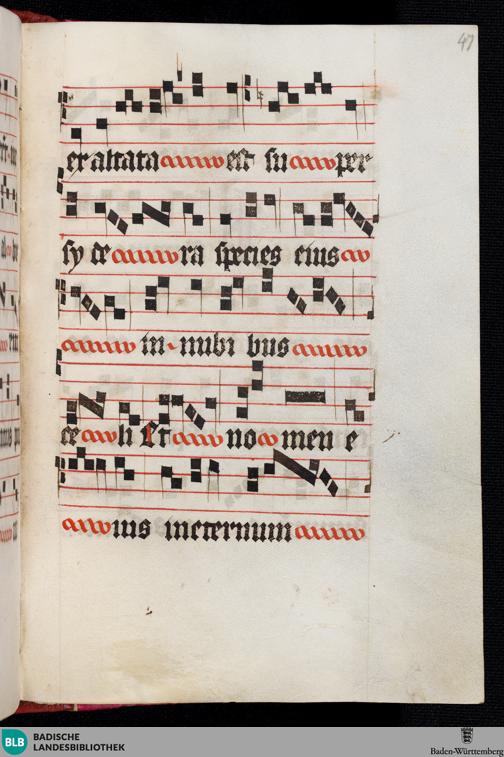 47
exaltata est su per
sy de ra species eius
in nubi bus
ce li Et no men e
ius ineternum
BLB BADISCHE
LANDESBIBLIOTHEK
Baden-Württemberg